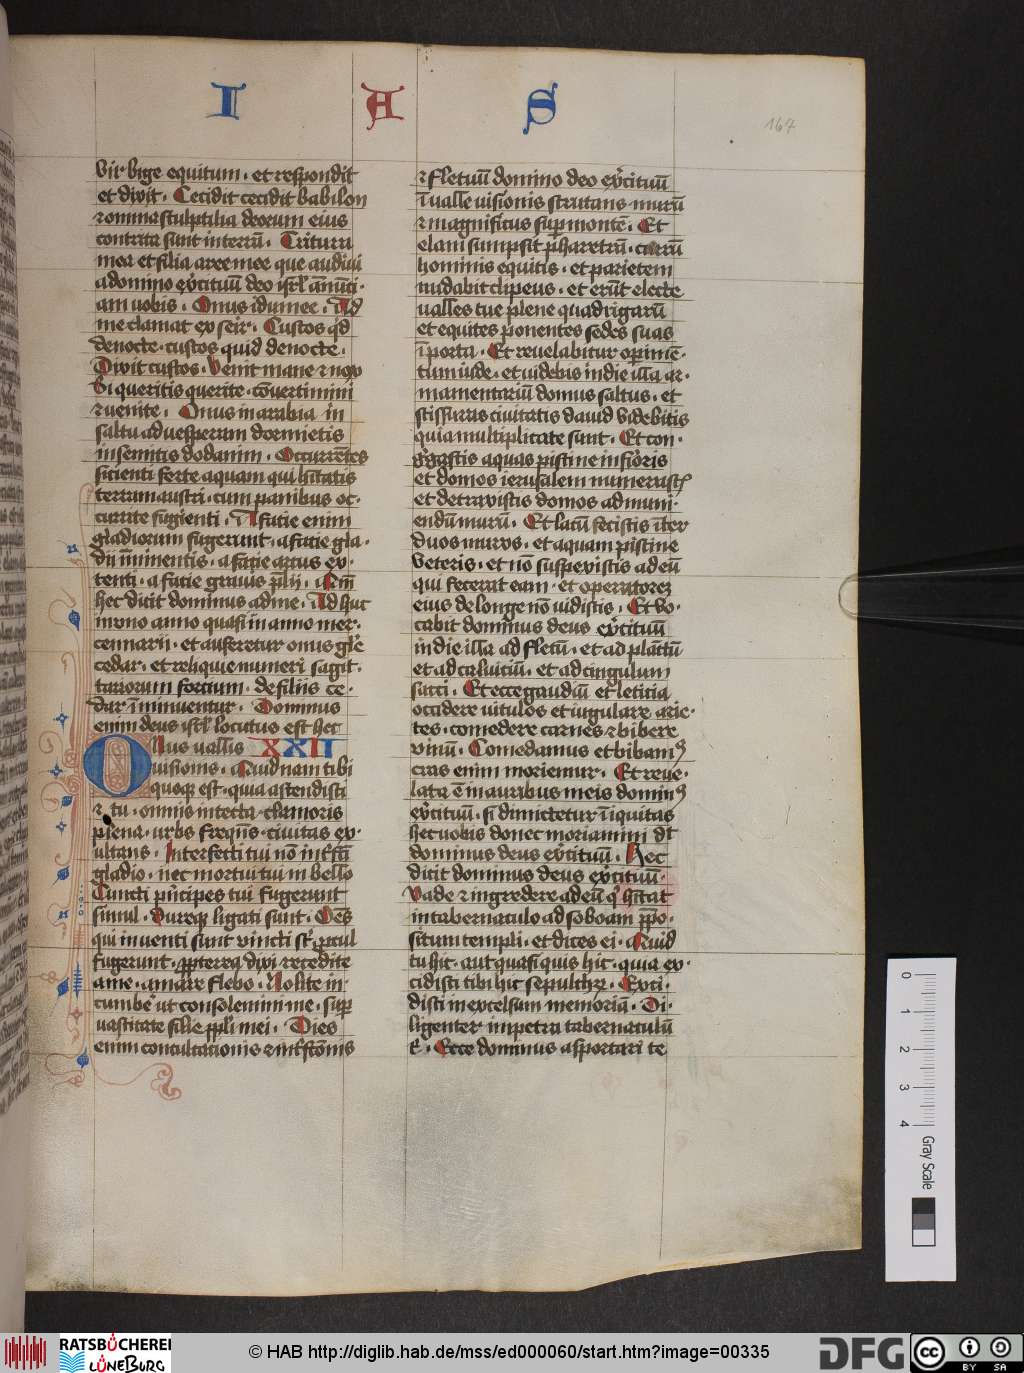 I A S
167
vir bige equitum · et respondit
et dixit · Cecidit cecidit babilon
⁊ omnia sculptilia deorum eius
contrita sunt in terrā · Tritura
mea et filia aree mee que audiui
a domino exc̾ituū deo isrl̄ annūci·
am uobis · Onus idumee · Ad
me clamat ex seir · Custos qͥd
de nocte · custos quid de nocte ·
Dixit custos · Venit mane ⁊ nox
Si queritis querite · cōuertimini
⁊ uenite · Onus in arabia in
saltu ad uesperam dormietis
in semitis dodanim · Occurrētes
sicienti ferte aquam qui hītatis
terram austri · cum panibus oc·
currite fugienti · A facie enim
gladiorum fugerunt · a facie gla·
dii īminentis · a facie arcus ex·
tenti · a facie grauis p̄lii · Qm̄
hec dicit dominus ad me · Ad huc
in uno anno quasi in anno mer·
cennarii · et auferetur omnis glͥa
cedar · et reliquie numeri sagit·
tariorum forcium · de filiis ce·
dar īminuentur · Dominus
enim deus isrl̄ locutus est hec
Onus uallis XXII
uisionis · Quid nam tibi
quoqꝫ est · quia ascendisti
⁊ tu · omnis in tecta · clamoris
plena · urbs frequēs · ciuitas ex·
ultans · Interfecti tui nō int̾fc̄i
gladio · nec mortui tui in bello
Cuncti pͥncipes tui fugerunt
simul · dureqꝫ ligati sunt · Oēs
qui inuenti sunt vincti st̄ procul
fugerunt · ꝓpterea dixi recedite
a me · amare flebo · Nolite in·
cumbe̾ ut consolemini me · suꝑ
uastitate filie pp̄li mei · Dies
enim conculcationis ⁊ int̾fc̄onis
⁊ fletuū domino deo exc̾ituū
ī ualle uisionis scrutans murū
⁊ magnificus suꝑ montē · Et
elam sumpsit pharetrā · currū
hominis equitis · et parietem
nudabit clipeus · et erūt electe
ualles tue plene quadrigarū
et equites ponentes sedes suas
ī porta · Et reuelabitur oꝑimē·
tum iude · et uidebis in die illa ar·
mamentariū domus saltus · et
scissuras ciuitatis dauid videbitis
quia multiplicate sunt · Et con·
g̾gastis aquas piscine inferioris
et domos ierusalem numerastꝭ
et detraxistis domos ad muni·
endū murū · Et lacū fecistis īter
duos muros · et aquam piscine
veteris · et nō suspexistis ad eū
qui fecerat eam · et operatorem
eius de longe nō uidistis · Et vo·
cabit dominus deus exc̾ituū
in die illa ad fletū · et ad planctū
et ad caluiciū · et ad cingulum
sacci · Et ecce gaudiū et leticia
occidere uitulos et iugulare arie·
tes · comedere carnes ⁊ bibere
vinū · Comedamus et bibamꝰ
cras enim moriemur · Et reue·
lata ē in auribus meis dominꝰ
exc̾ituū · si dimictetur īiquitas
hec uobis donec moriamini dt̄
dominus deus exc̾ituū · Hec
dicit dominus deus exc̾ituū ·
Vade ⁊ ingredere ad eū qͥ hītat
in tabernaculo ad soboam p̄po·
situm templi · et dices ei · Quid
tu hic · aut quasi quis hic · quia ex·
cidisti tibi hic sepulchꝝ · Exci·
disti in excelsum memoriā · Di·
ligenter in petra tabernaculū
t̾ · Ecce dominus asportari te
0 1 2 3 4
Gray Scale
RATSBÜCHEREI
LÜNEBURG
© HAB http://diglib.hab.de/mss/ed000060/start.htm?image=00335
DFG
cc BY SA